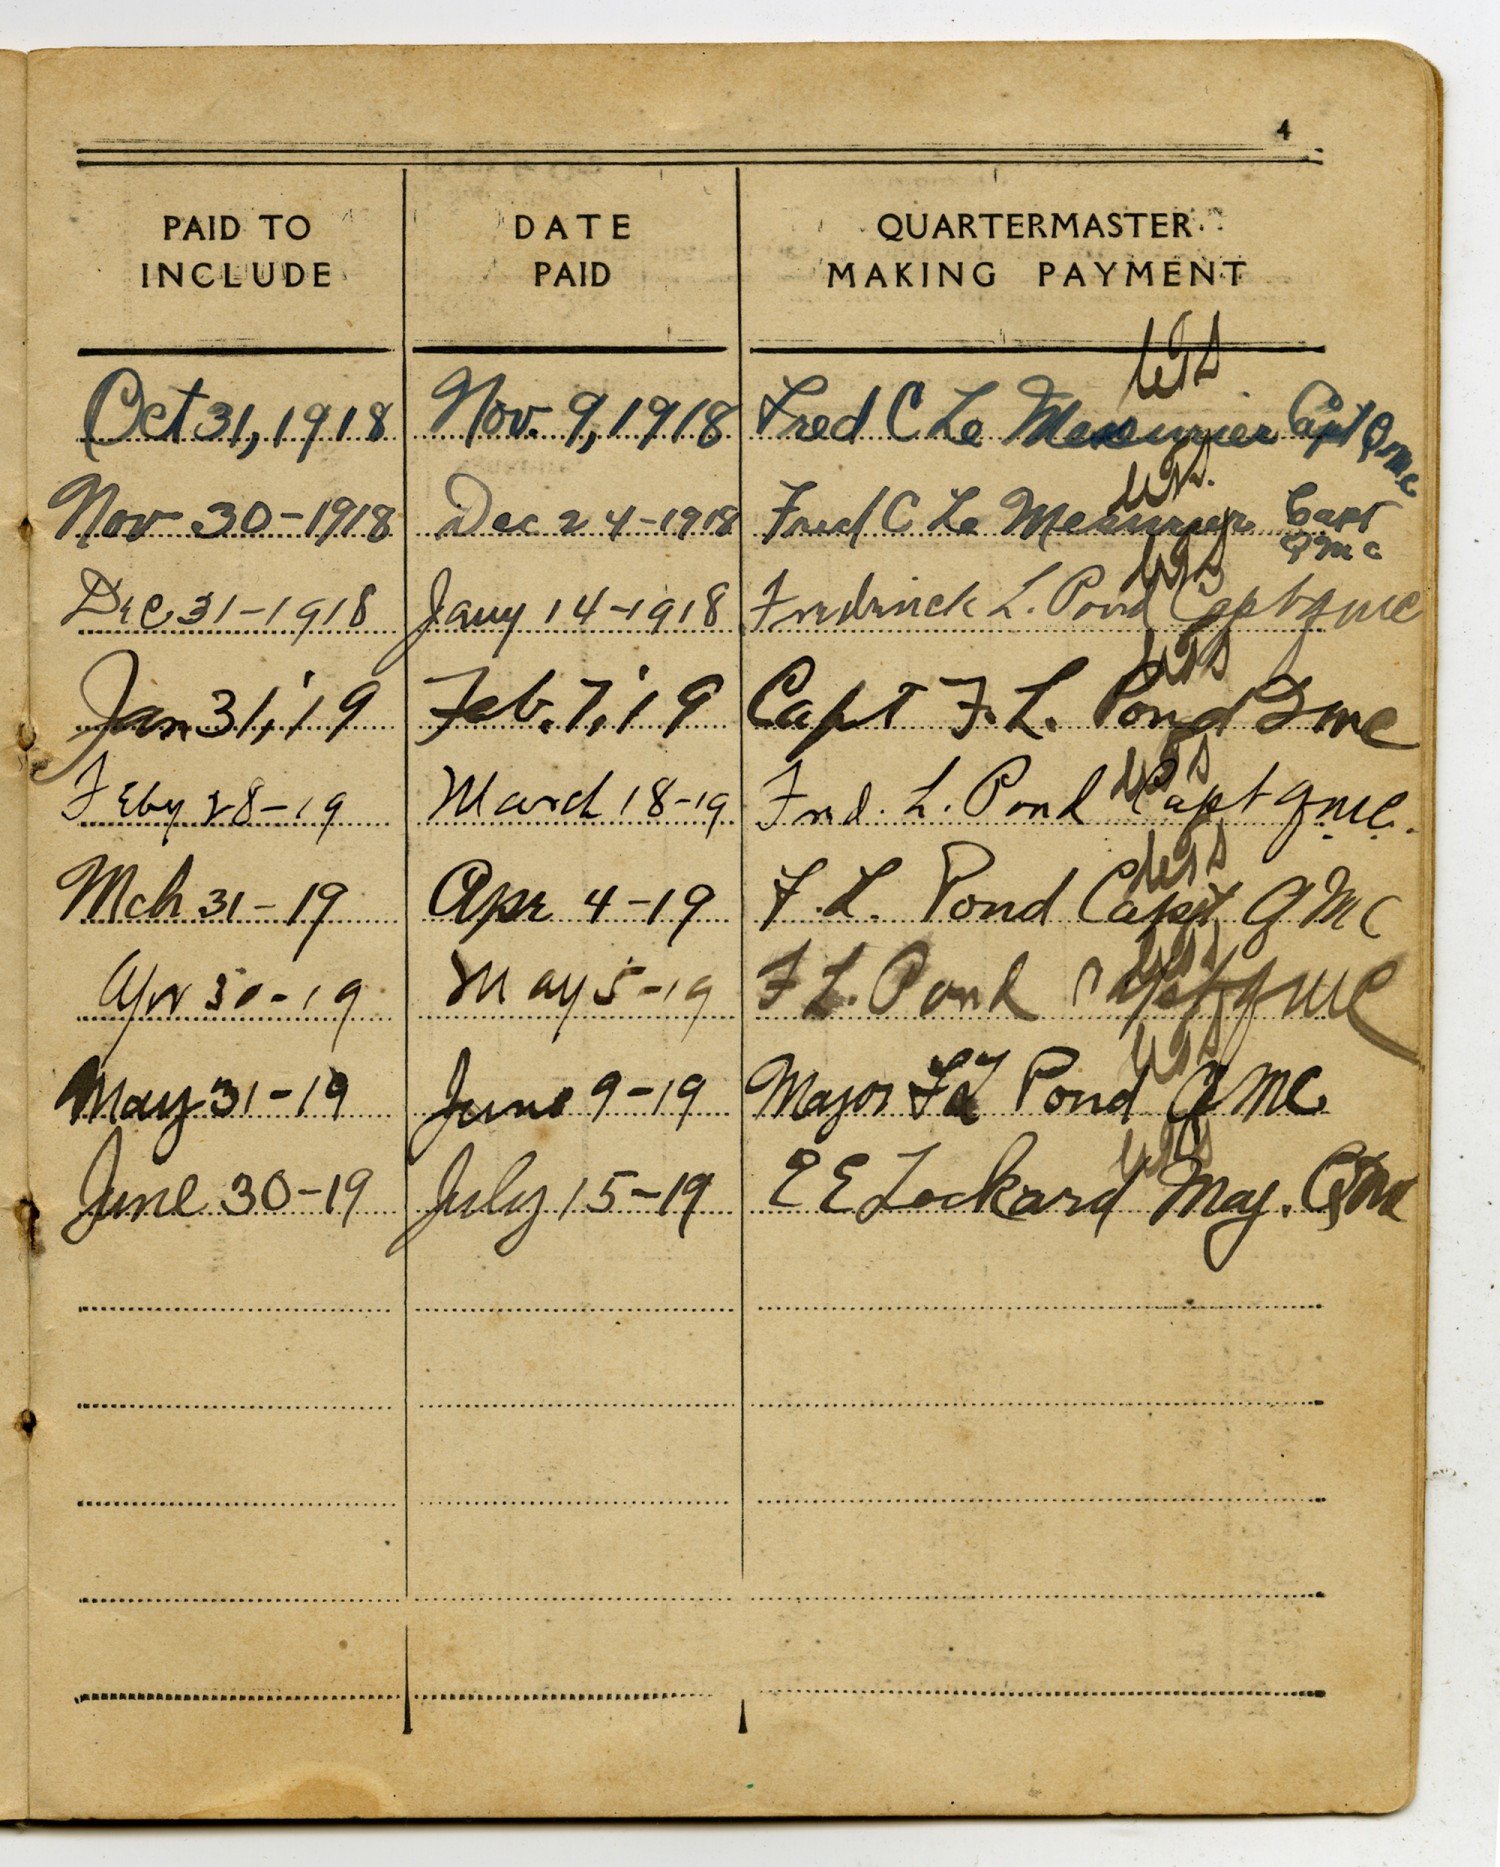 4
PAID TO INCLUDE
DATE PAID
QUARTERMASTER MAKING PAYMENT
Oct 31, 1918 Nov. 9, 1918 Fred C Le Mesurier Capt QMC
Nov 30-1918 Dec 24-1918 Fred C Le Mesurier Capt QMC
Dec 31-1918 Jany 14-1918 Fredrick L. Pond Capt qmc
Jan 31, '19 Feb. 7, '19 Capt F. L. Pond Qmc
Feby 28-19 March 18-19 Fred. L. Pond Capt qmc.
Mch 31-19 Apr 4-19 F. L. Pond Capt QMC
Apr 30-19 May 5-19 F L. Pond Capt qmc
May 31-19 June 9-19 Major F L Pond QMC
June 30-19 July 15-19 E E Lockard Maj. QMC